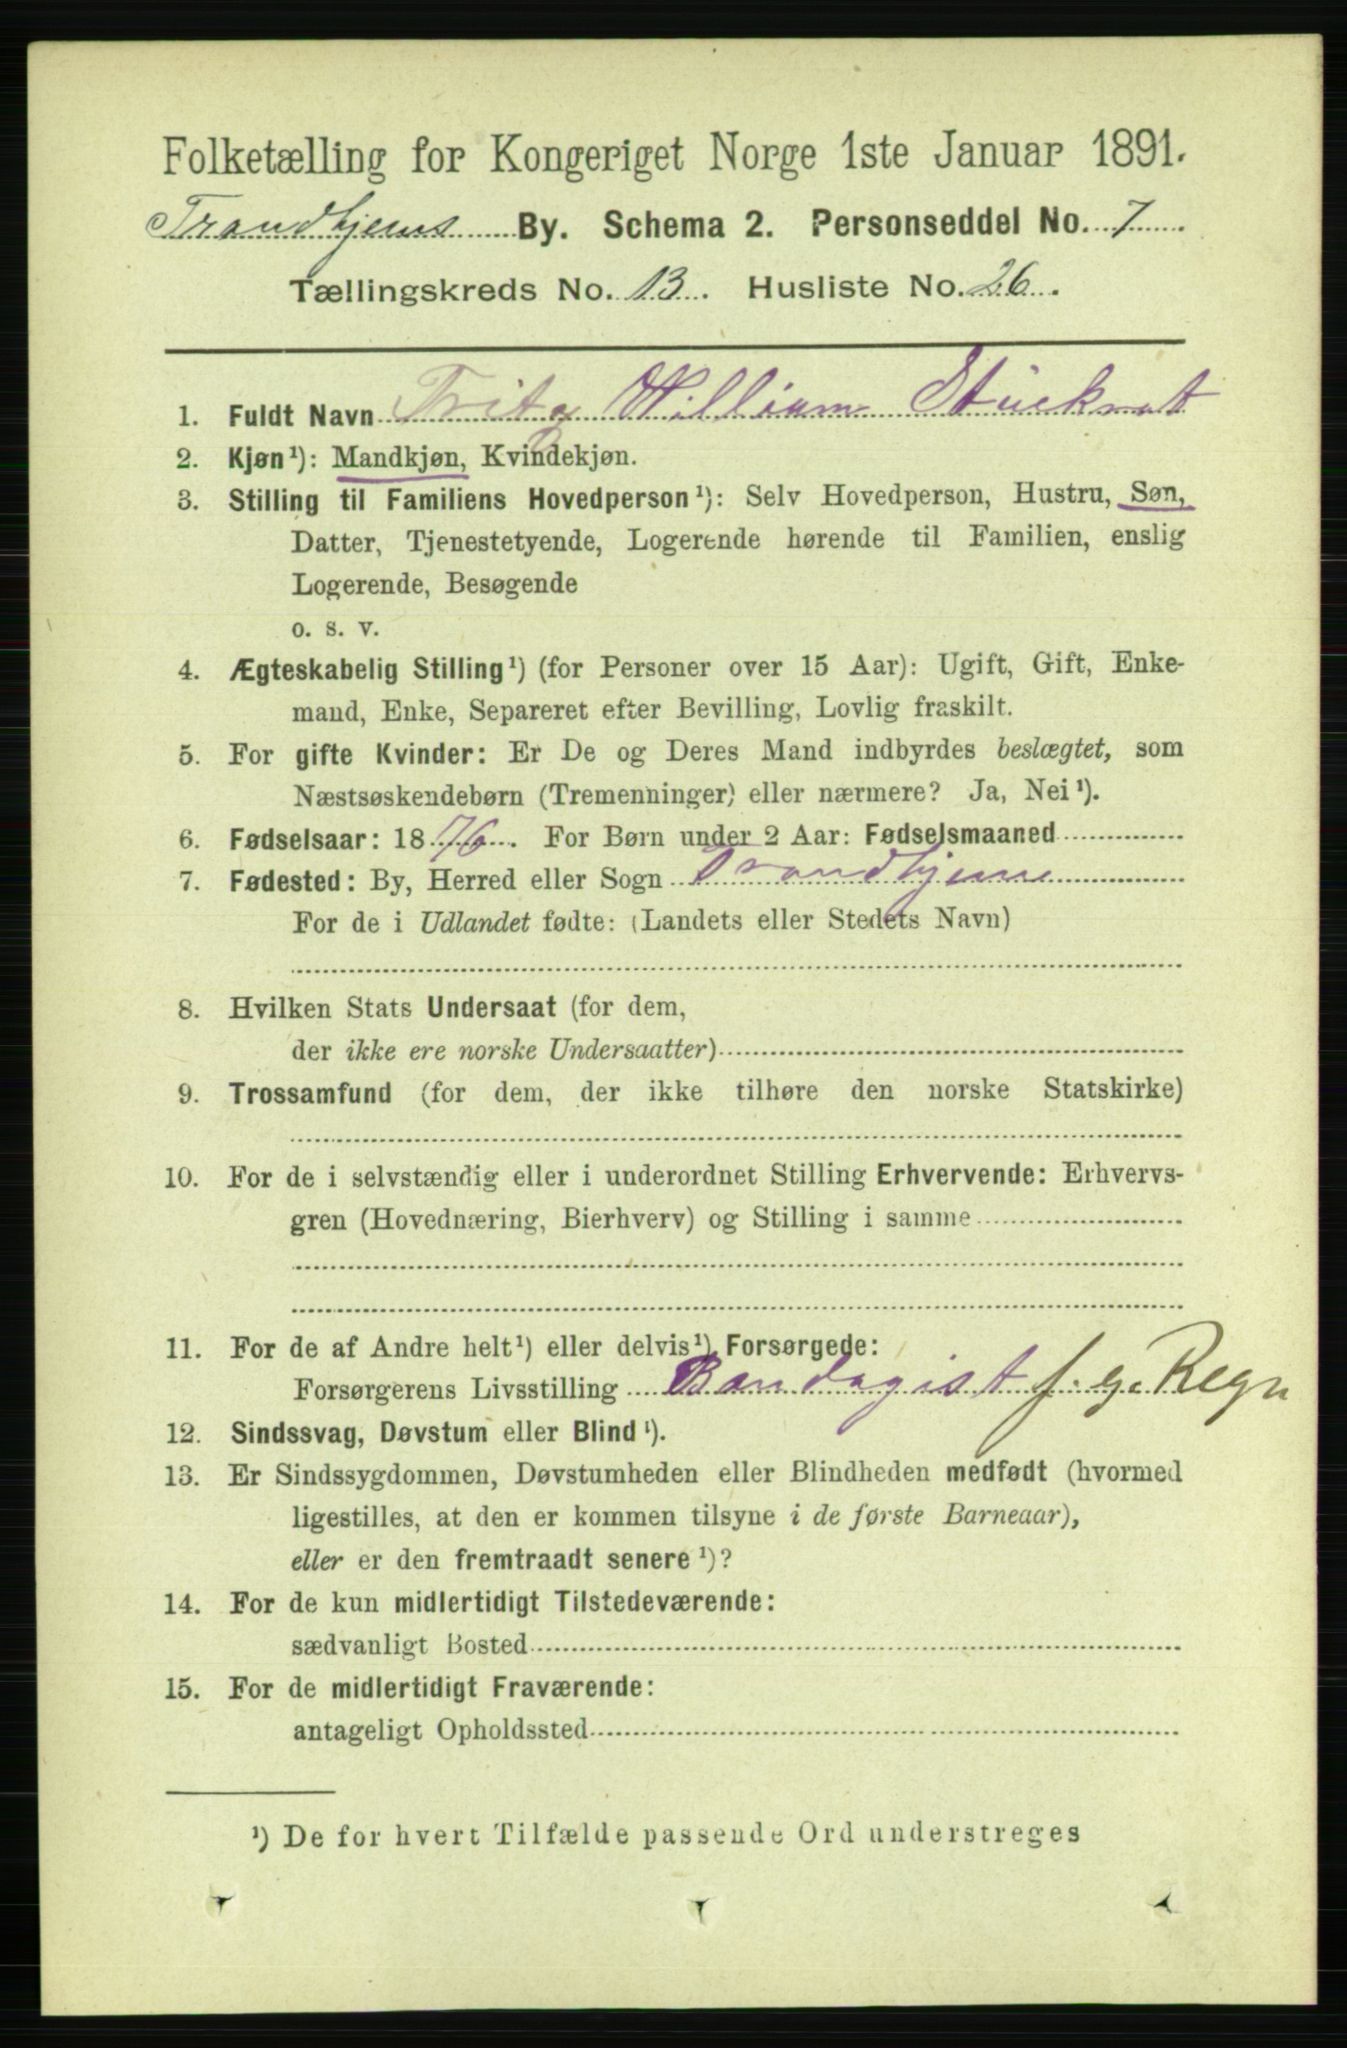 Folketælling for Kongeriget Norge 1ste Januar 1891.
Trondhjems By. Schema 2. Personseddel No. 7
Tællingskreds No. 13. Husliste No. 26.
1. Fuldt Navn Fritz William Stückrat
2. Kjøn¹): Mandkjøn, Kvindekjøn.
3. Stilling til Familiens Hovedperson¹): Selv Hovedperson, Hustru, Søn,
Datter, Tjenestetyende, Logerende hørende til Familien, enslig
Logerende, Besøgende
o. s. v.
4. Ægteskabelig Stilling¹) (for Personer over 15 Aar): Ugift, Gift, Enke-
mand, Enke, Separeret efter Bevilling, Lovlig fraskilt.
5. For gifte Kvinder: Er De og Deres Mand indbyrdes beslægtet, som
Næstsøskendebørn (Tremenninger) eller nærmere? Ja, Nei¹).
6. Fødselsaar: 1876. For Børn under 2 Aar: Fødselsmaaned
7. Fødested: By, Herred eller Sogn Trondhjem
For de i Udlandet fødte: (Landets eller Stedets Navn)
8. Hvilken Stats Undersaat (for dem,
der ikke ere norske Undersaatter)
9. Trossamfund (for dem, der ikke tilhøre den norske Statskirke)
10. For de i selvstændig eller i underordnet Stilling Erhvervende: Erhvervs-
gren (Hovednæring, Bierhverv) og Stilling i samme
11. For de af Andre helt¹) eller delvis¹) Forsørgede:
Forsørgerens Livsstilling Bandagist f. g. Regn
12. Sindssvag, Døvstum eller Blind¹).
13. Er Sindssygdommen, Døvstumheden eller Blindheden medfødt (hvormed
ligestilles, at den er kommen tilsyne i de første Barneaar),
eller er den fremtraadt senere¹)?
14. For de kun midlertidigt Tilstedeværende:
sædvanligt Bosted
15. For de midlertidigt Fraværende:
antageligt Opholdssted
¹) De for hvert Tilfælde passende Ord understreges